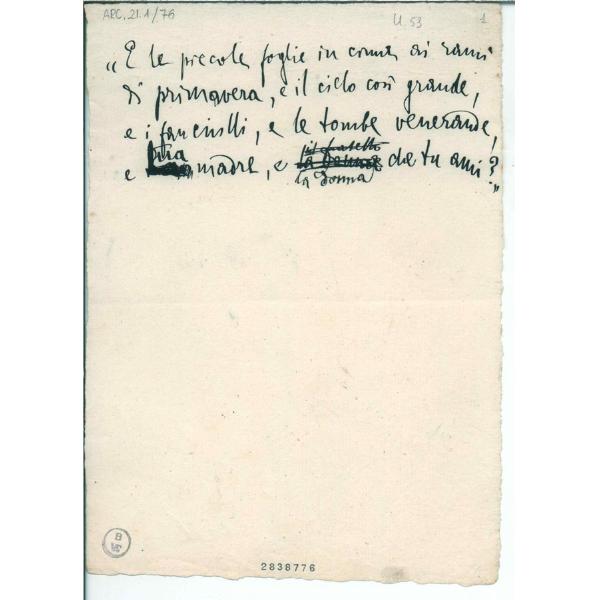 ARC.21.1/76 U.53 1
„E le piccole foglie in cima ai rami
di primavera, e il cielo così grande,
e i fanciulli, e le tombe venerande,
tua il fratello
e madre, e la donna che tu ami?„
la donna
B
2838776